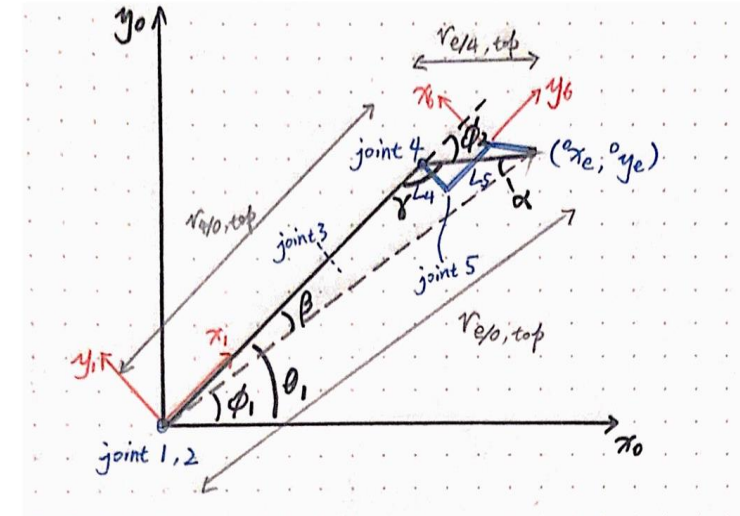 y₀
r e/4, top
x₆
y₆
joint 4
ϕ₂
(⁰xₑ; ⁰yₑ)
L₅
L₄
γ
α
r 4/0, top
joint 3
joint 5
β
r e/0, top
x₁
y₁
ϕ₁
θ₁
x₀
joint 1, 2